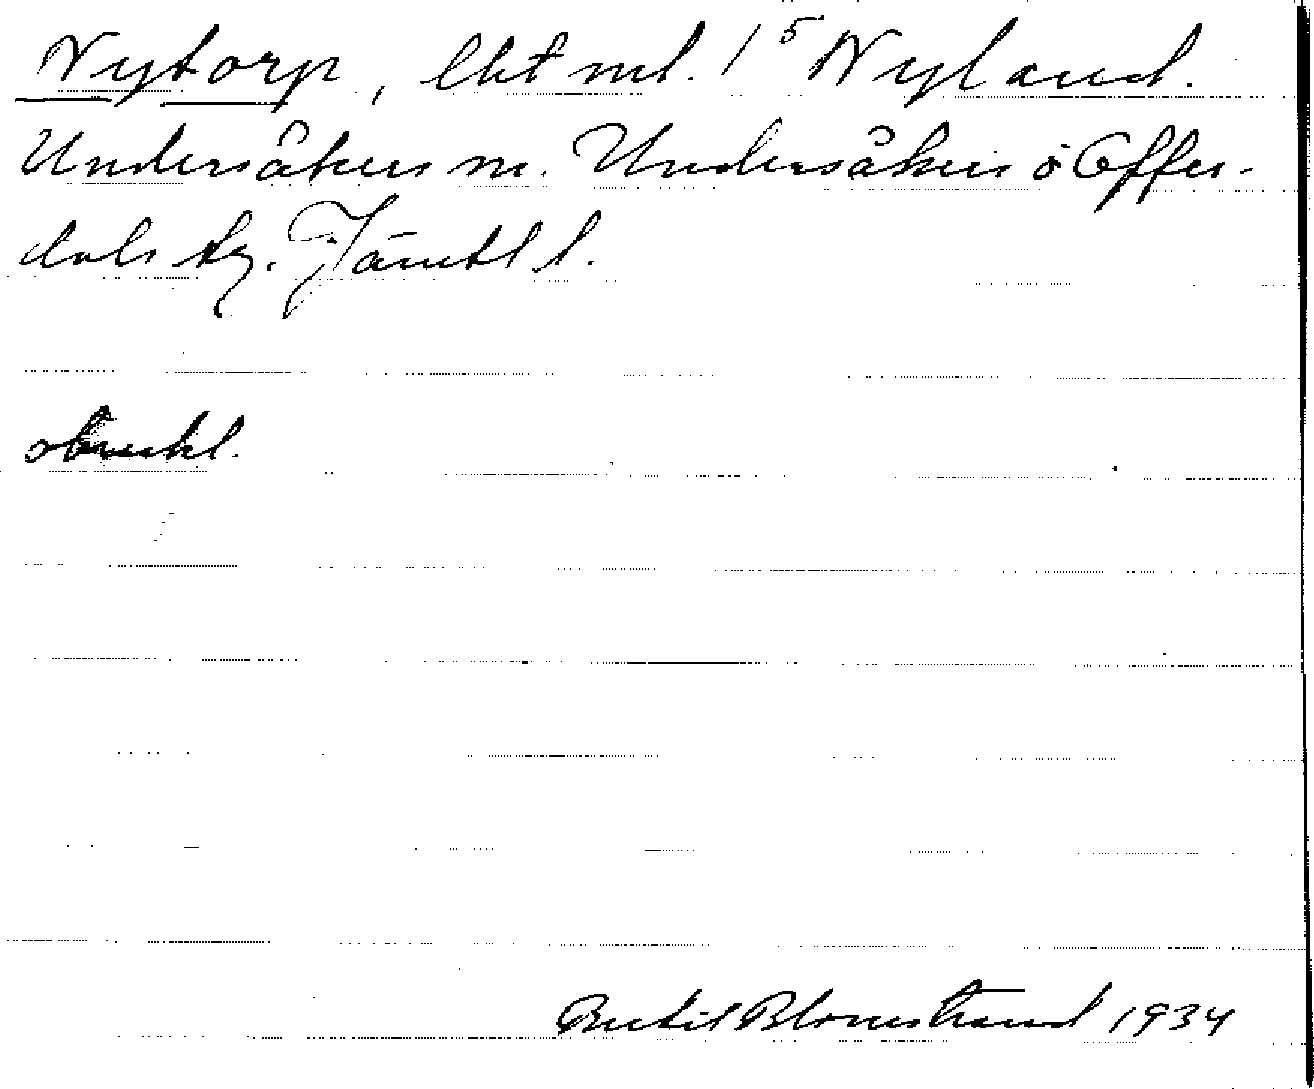 Nytorp, lht nml. 1⁵ Nyland.
Undersåkers sn. Undersåkers o Offer-
dals tg. Jämtl l.
obrukl.
Bertil Blomstrand 1934